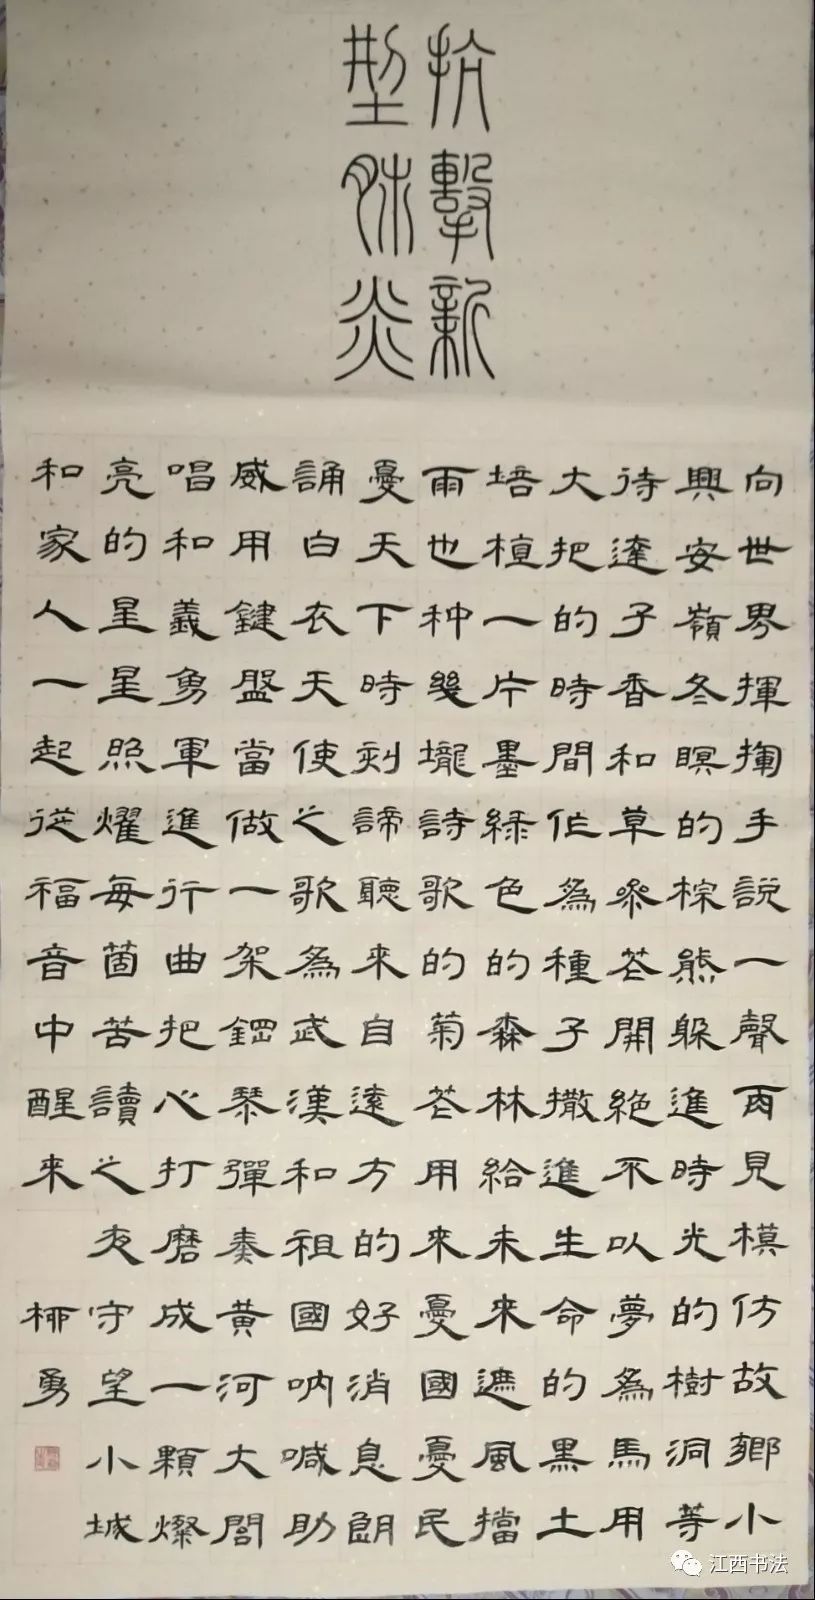 抗擊新
型肺炎
向世界揮揮手說一聲再見模仿故鄉小
興安嶺冬瞑的棕熊躲進時光的樹洞等
待達子香和草參花開絕不以夢為馬用
大把的時間作為種子撒進生命的黑土
培植一片墨綠色的森林給未來遮風擋
雨也种幾壠詩歌的菊花用來憂國憂民
憂天下時刻諦聽來自遠方的好消息朗
誦白衣天使之歌為武漢和祖國吶喊助
威用鍵盤當做一架鋼琴彈奏黃河大閤
唱和義勇軍進行曲把心打磨成一顆燦
亮的星星照耀每箇苦讀之夜守望小城
和家人一起從福音中醒來 柳勇
江西书法